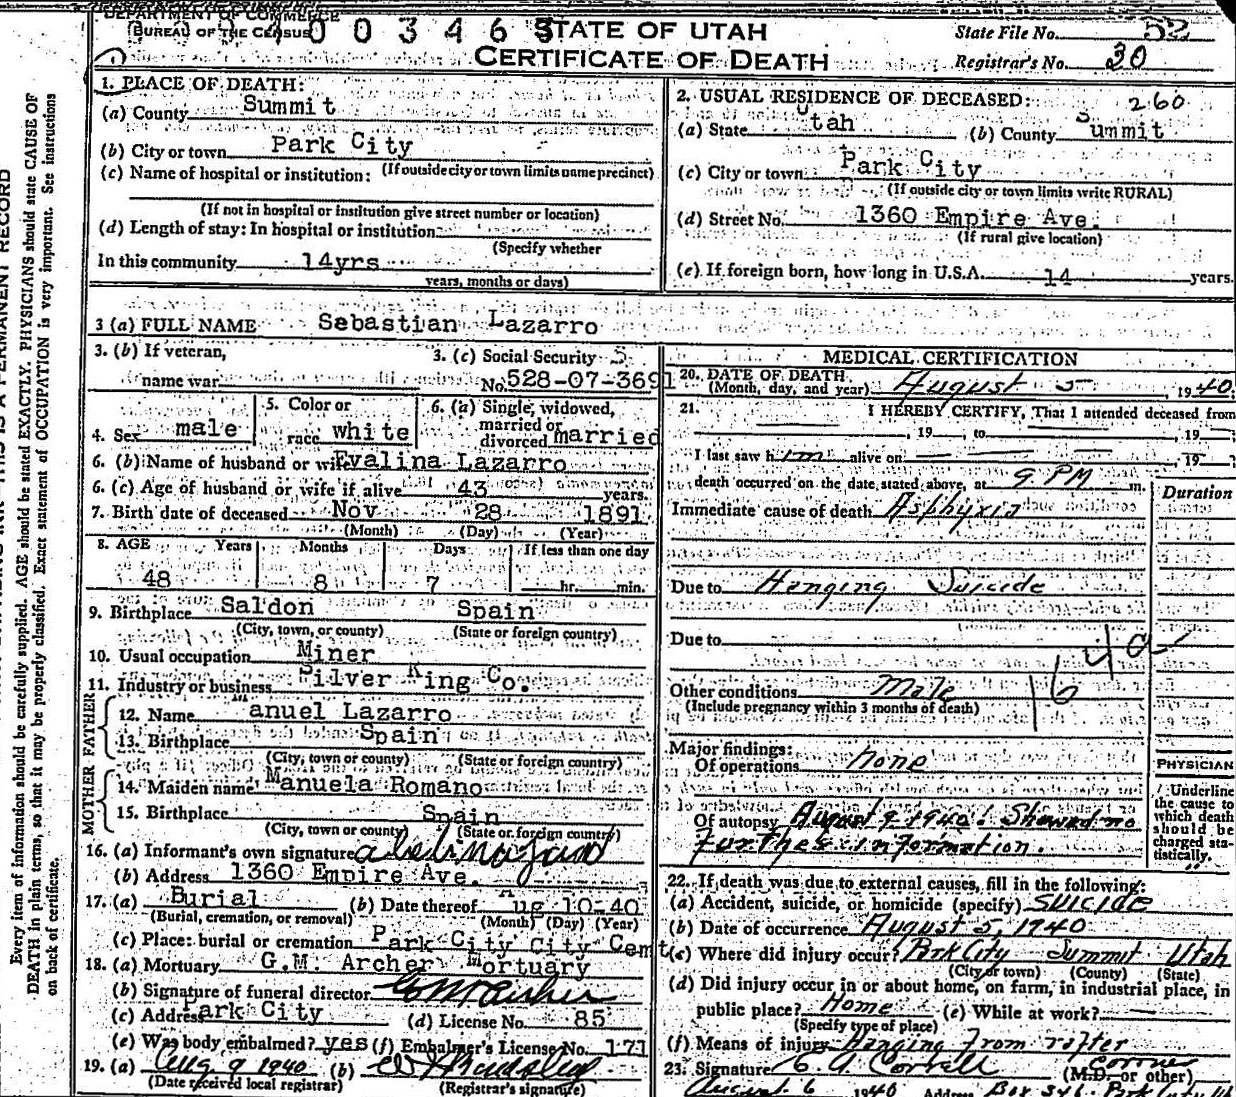 DEPARTMENT OF COMMERCE
BUREAU OF THE CENSUS
4 0 0 3 4 6 3
STATE OF UTAH
CERTIFICATE OF DEATH
State File No. 52
Registrar's No. 30
1. PLACE OF DEATH:
(a) County Summit
(b) City or town Park City
(If outside city or town limits name precinct)
(c) Name of hospital or institution:
(If not in hospital or institution give street number or location)
(d) Length of stay: In hospital or institution
(Specify whether
In this community 14yrs
years, months or days)
2. USUAL RESIDENCE OF DECEASED: 260
(a) State Utah (b) County Summit
(c) City or town Park City
(If outside city or town limits write RURAL)
(d) Street No. 1360 Empire Ave.
(If rural give location)
(e) If foreign born, how long in U.S.A. 14 years.
3 (a) FULL NAME Sebastian Lazarro
3. (b) If veteran,
name war
3. (c) Social Security
No. 528-07-3691
4. Sex male
5. Color or
race white
6. (a) Single, widowed,
married or
divorced married
6. (b) Name of husband or wife Evalina Lazarro
6. (c) Age of husband or wife if alive 43 years.
7. Birth date of deceased Nov 28 1891
(Month) (Day) (Year)
8. AGE Years Months Days If less than one day
48 8 7 hr. min.
9. Birthplace Saldon Spain
(City, town, or county) (State or foreign country)
10. Usual occupation Miner
11. Industry or business Silver King Co.
FATHER
12. Name Manuel Lazarro
13. Birthplace Spain
(City, town or county) (State or foreign country)
MOTHER
14. Maiden name Manuela Romano
15. Birthplace Spain
(City, town or county) (State or foreign country)
16. (a) Informant's own signature
(b) Address 1360 Empire Ave.
17. (a) Burial (b) Date thereof Aug 10-40
(Burial, cremation, or removal) (Month) (Day) (Year)
(c) Place: burial or cremation Park City City Cemt
18. (a) Mortuary G.M. Archer Mortuary
(b) Signature of funeral director GM Archer
(c) Address Park City (d) License No. 85
(e) Was body embalmed? yes (f) Embalmer's License No. 171
19. (a) Aug 9 1940 (b)
(Date received local registrar) (Registrar's signature)
MEDICAL CERTIFICATION
20. DATE OF DEATH
(Month, day, and year) August 5, 1940;
21. I HEREBY CERTIFY, That I attended deceased from
, 19 , to , 19 ;
I last saw him alive on , 19 ;
death occurred on the date stated above, at 9 PM m.
Duration
Immediate cause of death Asphyxia
Due to Hanging Suicide
Due to
164a
Other conditions Male
(Include pregnancy within 3 months of death)
Major findings:
Of operations none
Of autopsy August 9 1940: Showed no
Further information.
PHYSICIAN
Underline
the cause to
which death
should be
charged sta-
tistically.
22. If death was due to external causes, fill in the following:
(a) Accident, suicide, or homicide (specify) Suicide
(b) Date of occurrence August 5, 1940
(c) Where did injury occur? Park City Summit Utah
(City or town) (County) (State)
(d) Did injury occur in or about home, on farm, in industrial place, in
public place? Home (e) While at work?
(Specify type of place)
(f) Means of injury Hanging From rafter
23. Signature Coroner
(M.D. or other)
August 6 1940 Address Box 346 Park City Ut
Every item of information should be carefully supplied. AGE should be stated EXACTLY. PHYSICIANS should state CAUSE OF
DEATH in plain terms, so that it may be properly classified. Exact statement of OCCUPATION is very important. See instructions
on back of certificate.
THIS IS A PERMANENT RECORD